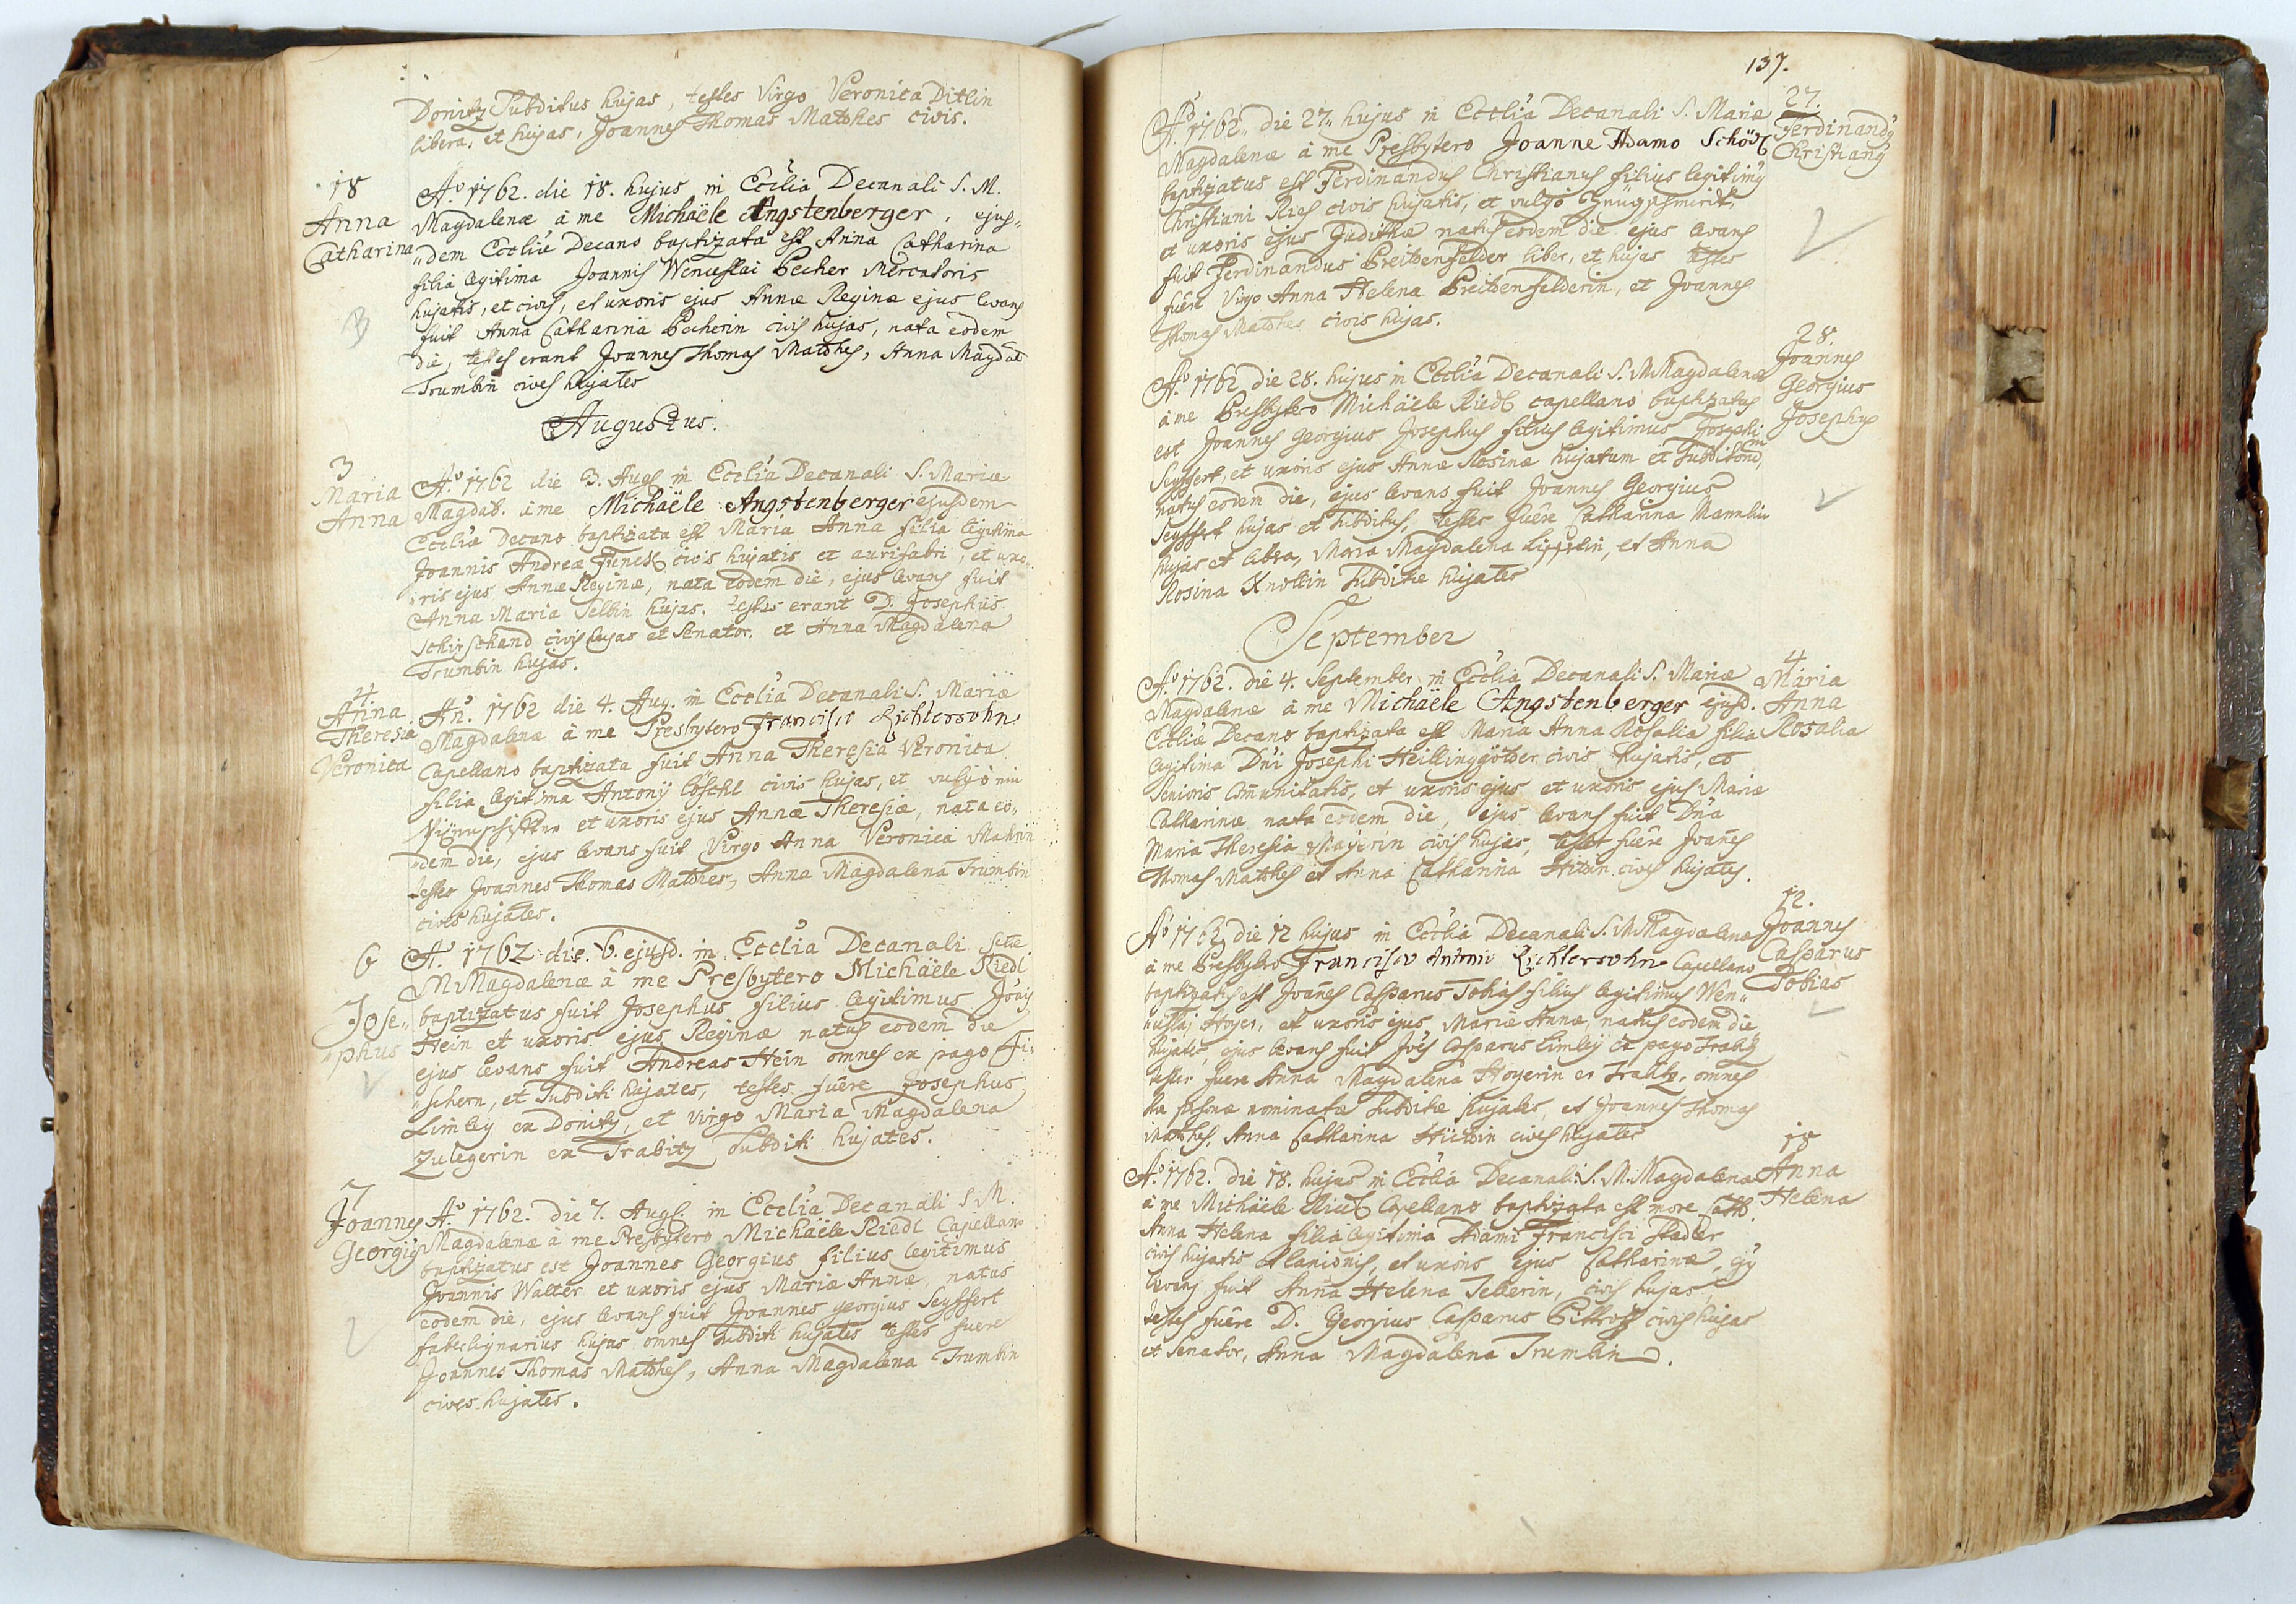 Donitz Subditus hujas, testes Virgo Veronica Ditlin
libera, et hujas, Joannes Thomas Matthes civis.
18
Anna
Catharina
Aº 1762. die 18. hujus in Ecclia Decanali S. M.
Magdalenæ à me Michaële Angstenberger, ejus„
„dem Eccliæ Decano baptizata est Anna Catharina
filia legitima Joannis Wenceslai Becher Mercatoris
hujatis, et civis, et uxoris ejus Annæ Reginæ ejus levans
fuit Anna Catharina Becherin civis hujas, nata eodem
die, testes erant Joannes Thomas Matthes, Anna Magdal
Trumbin cives hujates
Augustus.
3
Maria
Anna
Aº 1762 die 3. Aug in Ecclia Decanali S. Mariæ
Magdal. à me Michaële Angstenberger ejusdem
Eccliæ Decano baptizata est Maria Anna filia legitima
Joannis Andreæ civis hujatis et aurifabri, et uxo„
„ris ejus Annæ Reginæ, nata eodem die, ejus levans fuit
Anna Maria hujas. testes erant D. Josephus
civis hujas et Senator. et Anna Magdalena
Trumbin hujas.
4
Anna
Theresia
Veronica
Anº. 1762 die 4. Aug. in Ecclia Decanali S. Mariæ
Magdalenæ à me Presbytero Francisco Richtersohn
Capellano baptizata fuit Anna Theresia Veronica
filia legitima Antonij Löschl civis hujas, et vulgò ein
et uxoris ejus Annæ Theresiæ, nata eo„
„dem die, ejus levans fuit Virgo Anna Veronica
testes Joannes Thomas Matthes, Anna Magdalena Trumbin
cives hujates.
6
Jose„
„phus
Aº 1762 die. 6. ejusd. in Ecclia Decanali Sctæ
M Magdalenæ à me Presbytero Michaële Riedl
baptizatus fuit Josephus filius legitimus
Hein et uxoris ejus Reginæ natus eodem die
ejus levans fuit Andreas Hein omnes ex pago Fi„
„schern, et Subditi hujates, testes fuêre Josephus
Limley ex Donitz, et Virgo Maria Magdalena
Zulegerin ex Trabitz Subditi hujates.
7
Joannes
Georgius
Aº 1762. Die 7. Aug. in Ecclia Decanali S M.
Magdalenæ à me Presbytero Michaële Riedl Capellano
baptizatus est Joannes Georgius filius legitimus
Joannis Walter et uxoris ejus Mariæ Annæ, natus
eodem die, ejus levans fuit Joannes georgius Seyffert
faber lignarius hujus omnes Subditi hujates testes fuere
Joannes Thomas Matthes, Anna Magdalena Trumbin
cives hujates.
137.
27.
Ferdinandus
Christianus
Aº 1762 die 27 hujus in Ecclia Decanali S. Mariæ
Magdalenæ à me Presbytero Joanne Adamo
baptizatus est Ferdinandus Christianus filius legitimus
Christiani Ries civis hujatis, et vulgò
et uxoris ejus Judithæ natus eodem die ejus levans
fuit Ferdinandus Breitenfelder liber, et hujas testes
fuêre Virgo Anna Helena Breitenfelderin, et Joannes
Thomas Matthes civis hujas.
28.
Joannes
Georgius
Josephus
Aº 1762 die 28. hujus in Ecclia Decanali S. M Magdalenæ
à me Presbytero Michaële Riedl capellano baptizatus
est Joannes Georgius Josephus filius legitimus Josephi
Seyffert, et uxoris ejus Annæ Rosinæ hujatum et
natus eodem die, ejus levans fuit Joannes Georgius
Seyffert hujas et Subditus, testes fuêre Catharina
hujas et libera, Maria Magdalena et Anna
Rosina Knollin Subditæ hujates
September
4
Maria
Anna
Rosalia
Aº 1762. die 4. September in Ecclia Decanali S. Mariæ
Magdalenæ à me Michaële Angstenberger ejusd.
Eccliæ Decano baptizata est Maria Anna Rosalia filia
legitima Dni Josephi civis hujatis, et
Senioris Communitatis, et uxoris ejus et uxoris ejus Mariæ
Catharinæ nata eodem die, ejus levans fuit Dna
Maria Theresia Mayerin civis hujas, testes fuêre Joañes
Thomas Matthes et Anna Catharina cives hujates.
12.
Joannes
Casparus
Tobias
Aº 1762 die 12 hujus in Ecclia Decanali S. M Magdalenæ
à me Presbytero Francisco Antonio Richtersohn Capellano
baptizatus est Joañes Casparus Tobias filius legitimus Wen„
Hoyer, et uxoris ejus Mariæ Annæ, natus eodem die
hujatis, ejus levans fuit Casparus Limley ex pago Trabitz
testes fuere Anna Magdalena Hoyerin ex Trabitz, omnes
nominatæ Subditæ hujates, et Joannes Thomas
Matthes, Anna Catharina cives hujates
18
Anna
Helena
Aº 1762. die 18. hujus in Ecclia Decanali S. M. Magdalenæ
à me Michaële Riedl Capellano baptizata est more Cath.
Anna Helena filia legitima Adami Francisci Stadler
civis hujatis et uxoris ejus Catharinæ,
levans fuit Anna Helena civis hujas,
testes fuêre D. Georgius Casparus civis hujas
et Senator, Anna Magdalena Trumbin.